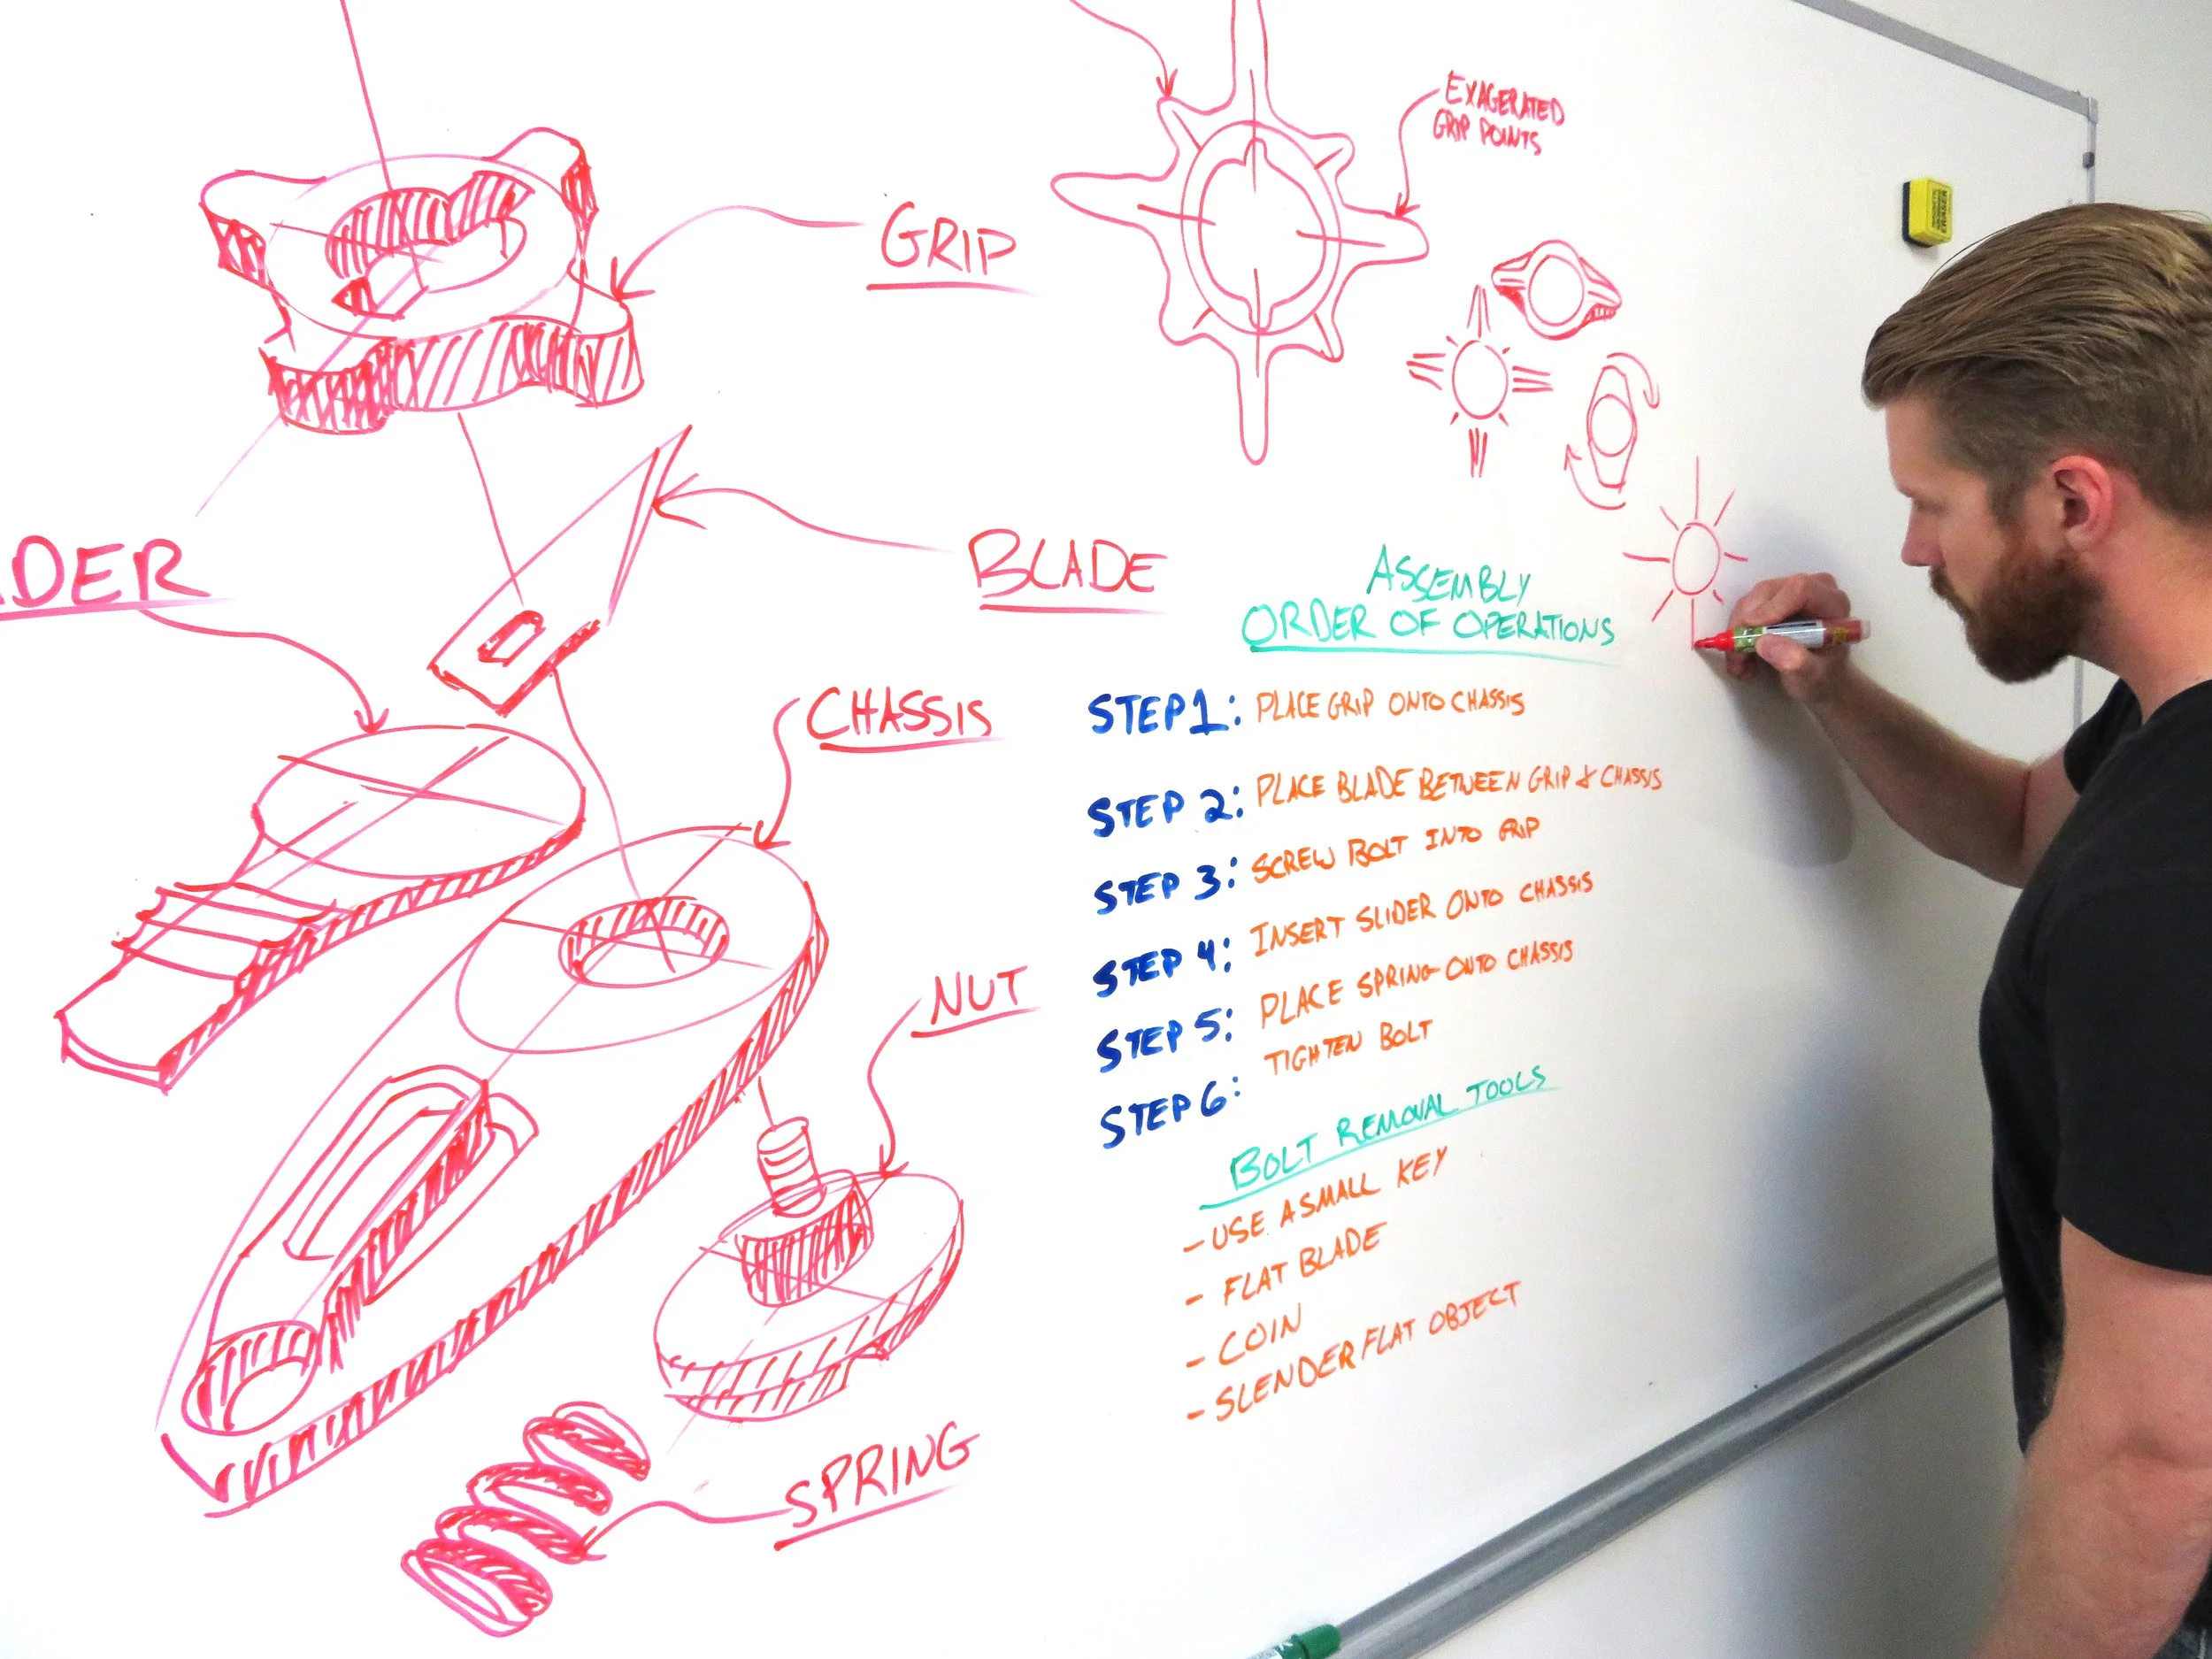 EXAGERATED
GRIP POINTS
GRIP
BLADE
CHASSIS
NUT
SPRING
ASSEMBLY
ORDER OF OPERATIONS
STEP 1: PLACE GRIP ONTO CHASSIS
STEP 2: PLACE BLADE BETWEEN GRIP & CHASSIS
STEP 3: SCREW BOLT INTO GRIP
STEP 4: INSERT SLIDER ONTO CHASSIS
STEP 5: PLACE SPRING ONTO CHASSIS
STEP 6: TIGHTEN BOLT
BOLT REMOVAL TOOLS
- USE A SMALL KEY
- FLAT BLADE
- COIN
- SLENDER FLAT OBJECT
ERASER